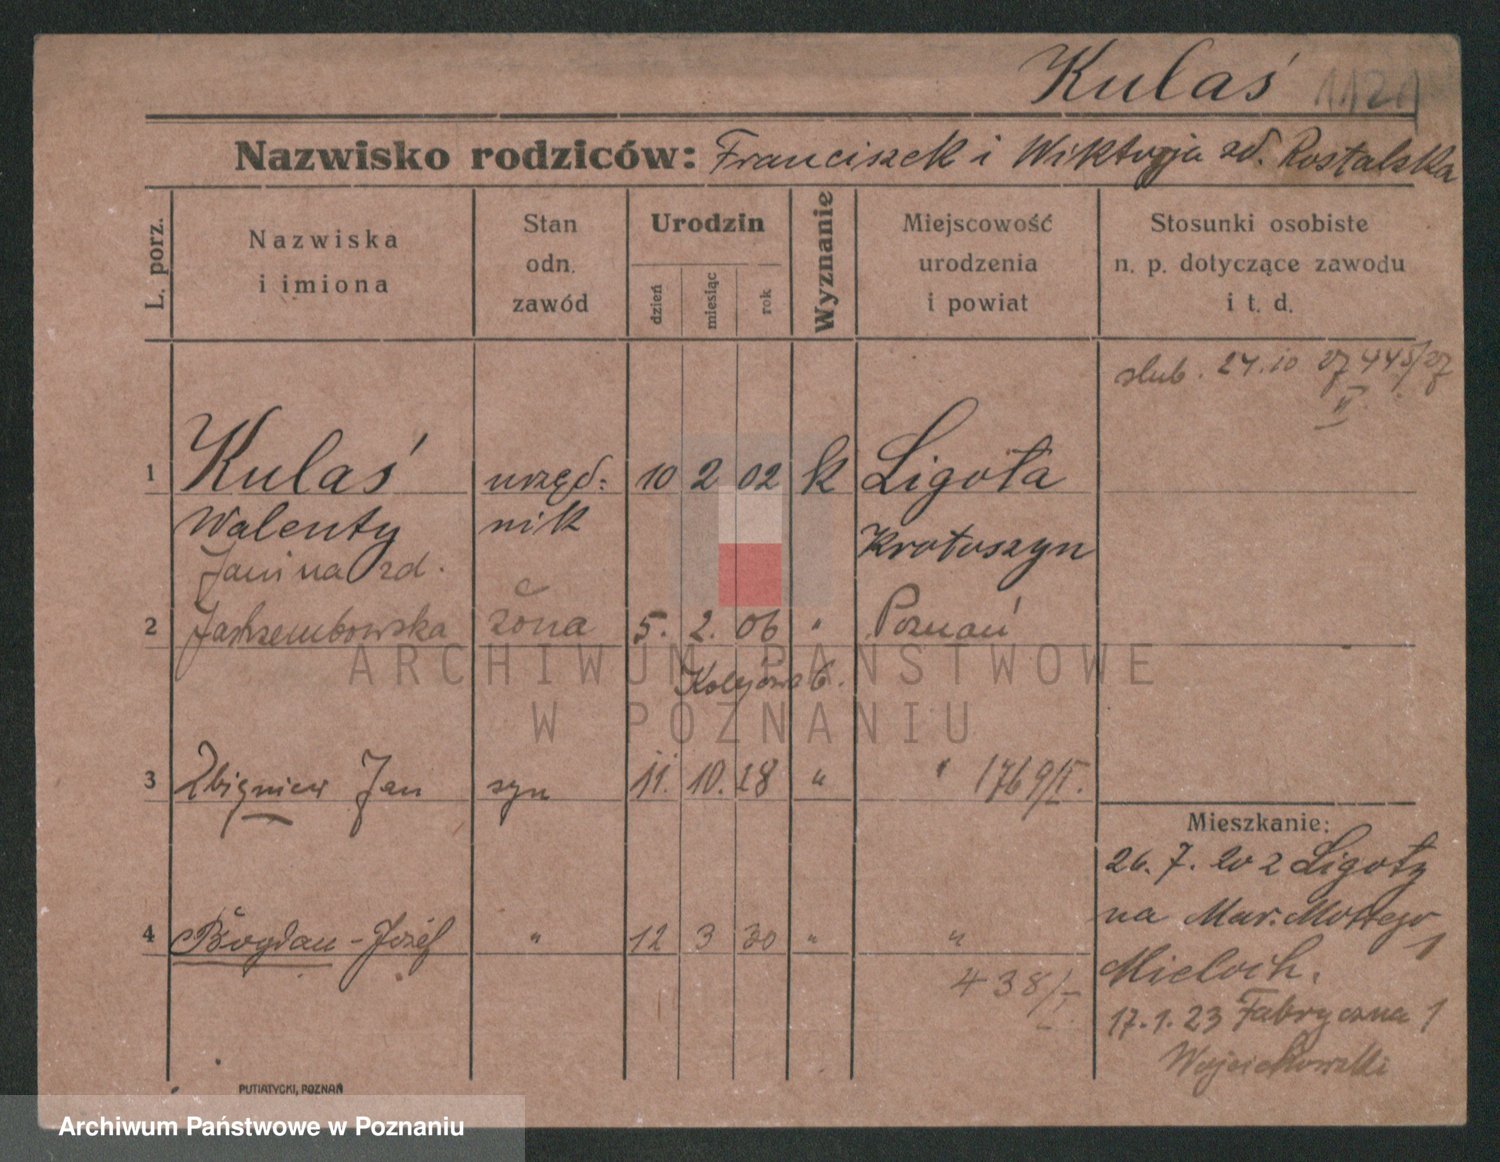 Kulaś 1121
Nazwisko rodziców: Franciszek i Wiktorja zd. Rostalska
L. porz.
Nazwiska
i imiona
Stan
odn.
zawód
Urodzin
dzień
miesiąc
rok
Wyznanie
Miejscowość
urodzenia
i powiat
Stosunki osobiste
n. p. dotyczące zawodu
i t. d.
slub. 24.10 27 445/27
II
1 Kulaś urzęd= 10 2 02 k Ligota
Walenty nik Krotoszyn
Janina zd.
2 Jastrzembowska żona 5. 2. 06 " Poznań
ARCHIWUM PAŃSTWOWE
W POZNANIU
3 Zbigniew Jan syn 11. 10. 28 " " 1769/I.
Mieszkanie:
26. 7. 20 z Ligoty
na Mar. Mottego 1
4 Bogdan - Józef " 12 3 30 " "
438/I.
Mieloch.
17.1.23 Fabryczna 1
Wojciechowski
PUTIATYCKI, POZNAŃ
Archiwum Państwowe w Poznaniu